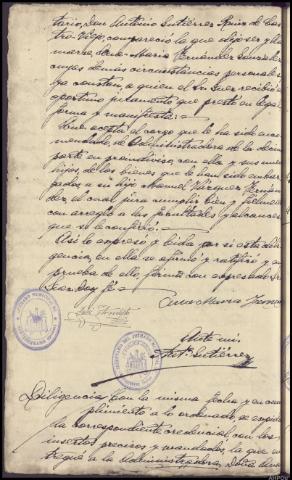 tario, Don Antonio Gutiérrez Ruiz de Cas-
tro-Viejo, compareció la que dijo ser y lla-
marse Doña María Fernández
cuyas demás circunstancias personales
ya constan, a quien el Sr. Juez recibió el
oportuno juramento que prestó en legal
forma y manifestó:
Que acepta el cargo que le ha sido enco-
mendado, de Administradora de la
parte en proindiviso con ella y sus menores
hijos, de los bienes que le han sido embar-
gados a su hijo Manuel Vázquez Fernán-
dez, el cual jura cumplir bien y fielmente
con arreglo a las facultades y alcances
que se le confirió.
Así lo expresó y leída por sí esta dili-
gencia, en ella se afirmó y ratificó y en
prueba de ello, firma con expresado Sr.
Juez. Doy fé.
María
Ante mi:
Antº. Gutiérrez
Diligencia: Con la misma fecha y en cum-
plimiento a lo ordenado se expide
la correspondiente credencial con los
insertos precisos y mandados, la que en-
tregué a la Administradora, Doña